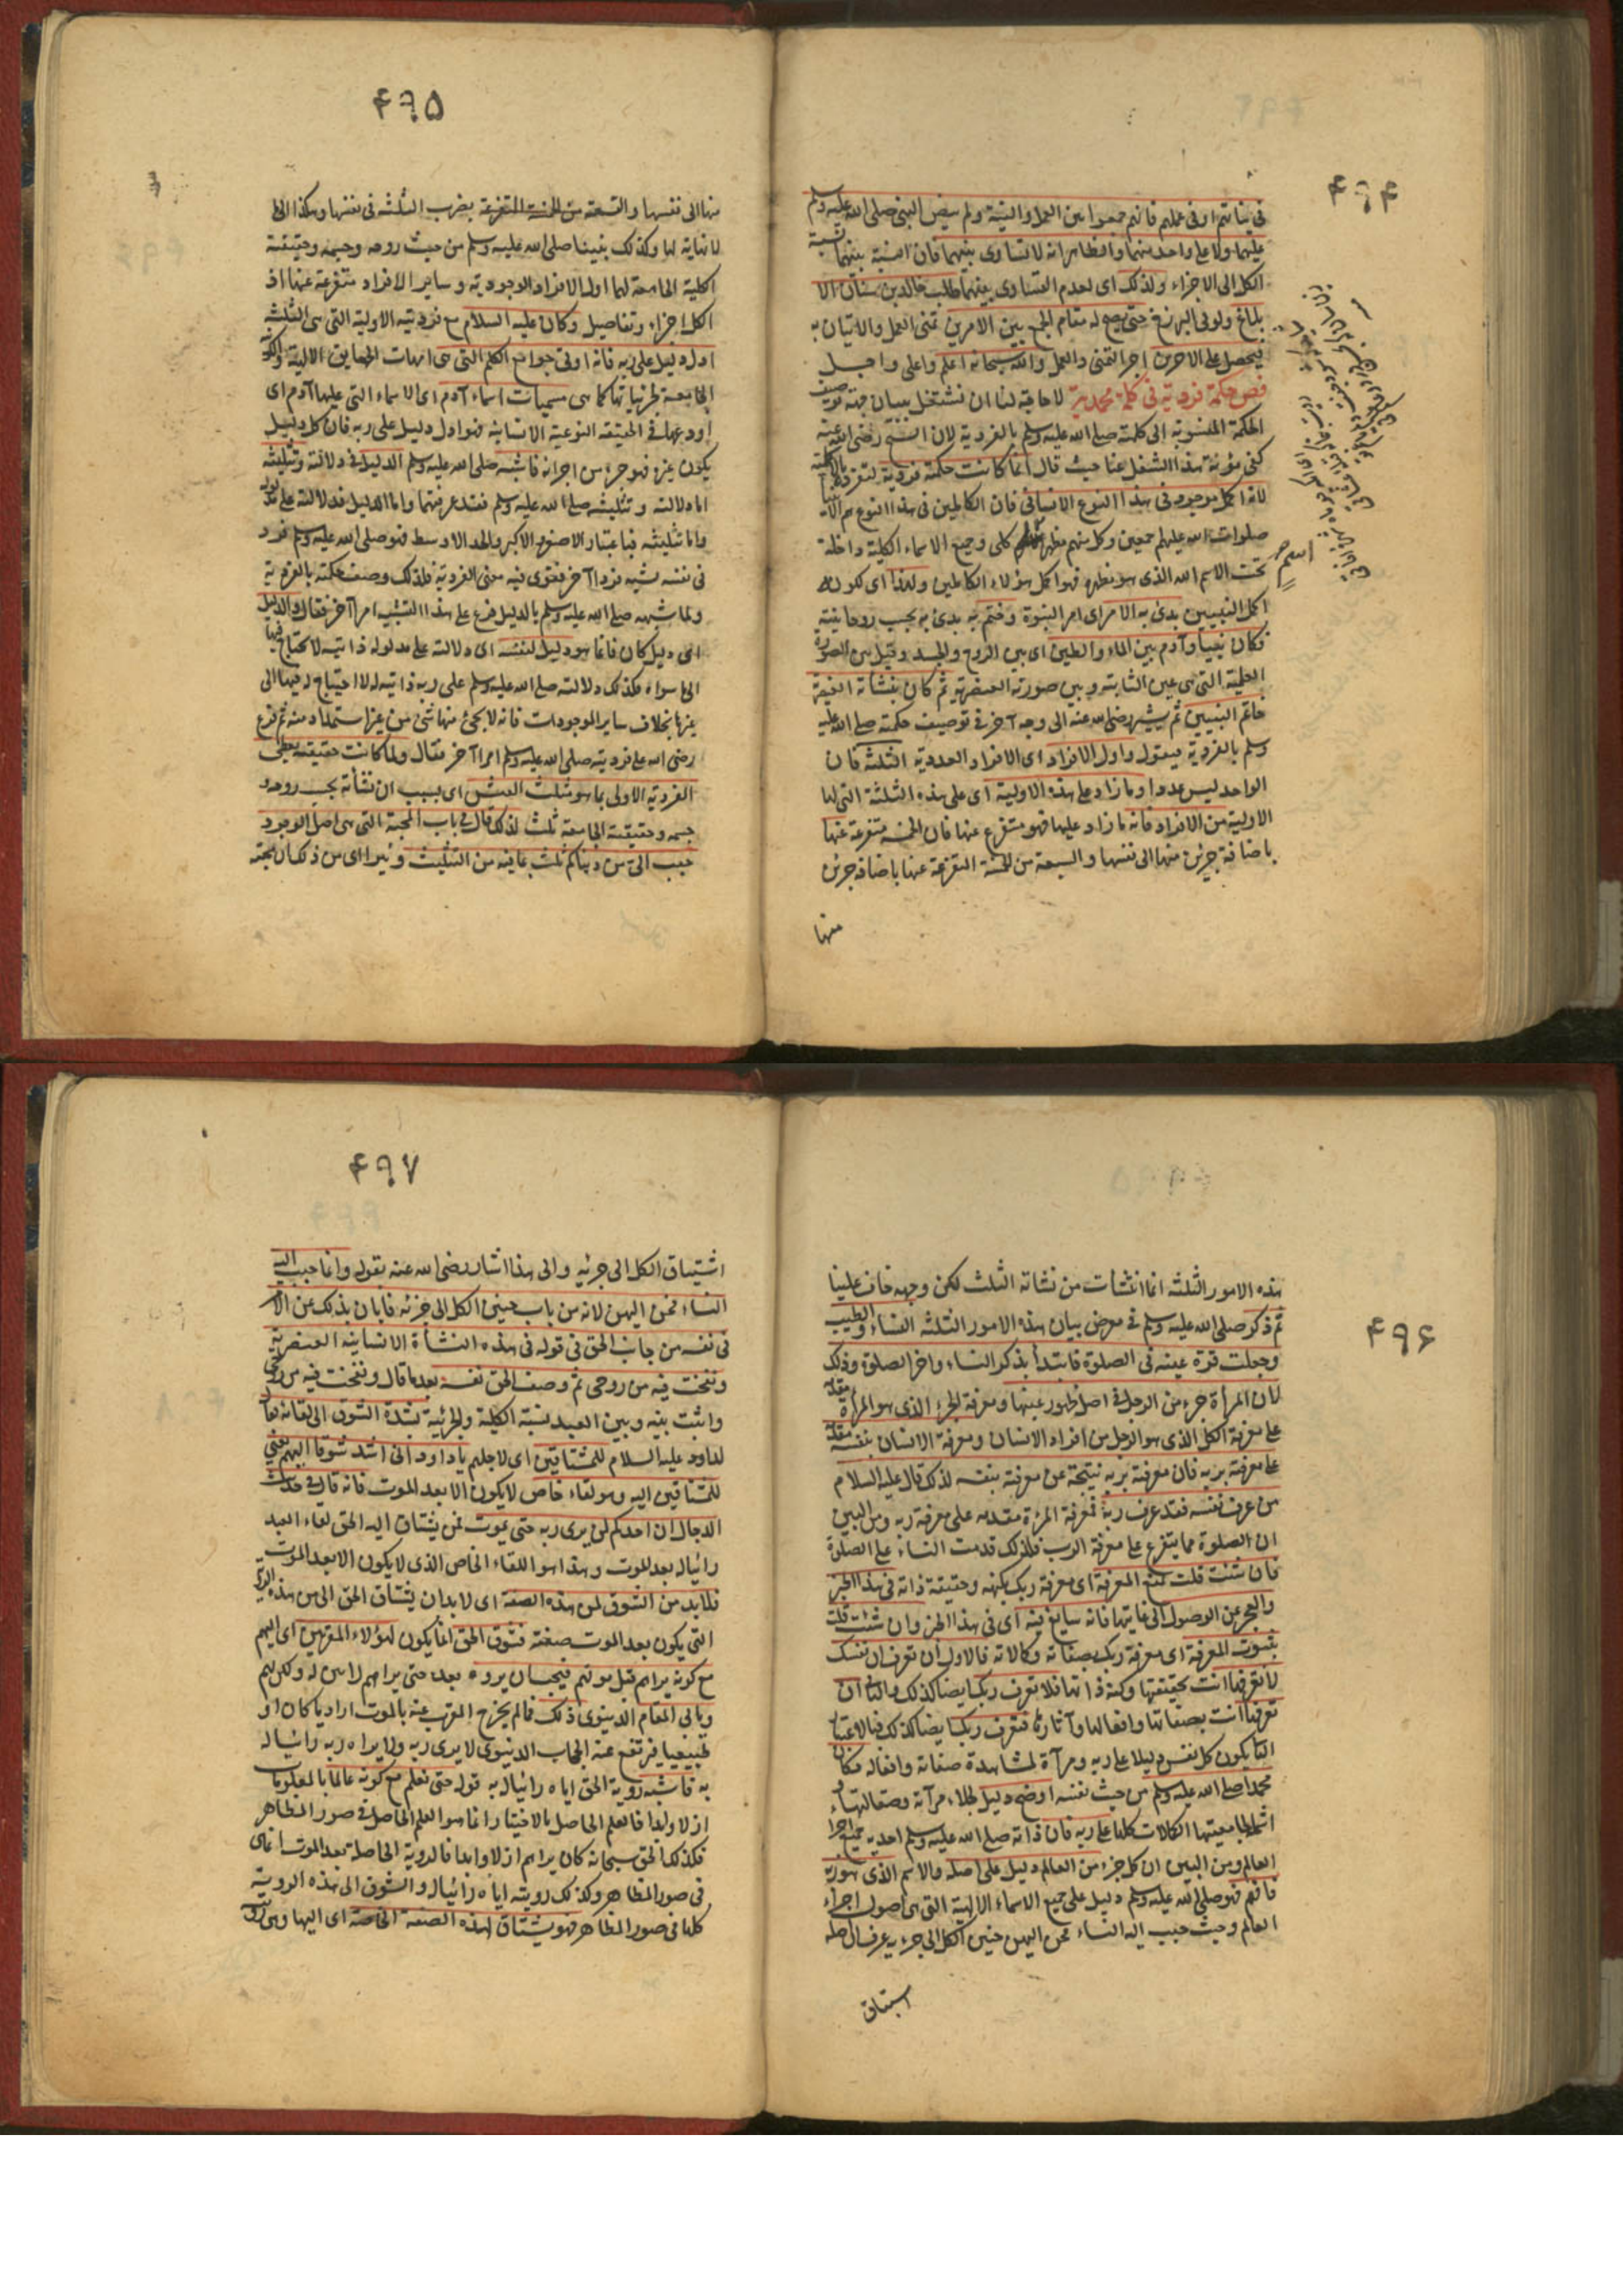 ۴۹۴
فی نیاتهم او فی عملهم فانهم جمعوا بین العمل والنیة ولم ینص النبی صلی الله علیه وسلم
علیهما ولا علی واحد منهما والظاهر انه لا تساوی بینهما فان النسبة بینهما نسبة
الکل الی الاجزاء ولذلک ای لعدم التساوی بینهما طلب خالد بن سنان الا
بلاغ ولو فی البرزخ حتی یصح له مقام الجمع بین الامرین تمنی العمل والاتیان به
فیحصل علی الاجرین اجر التمنی والعمل والله سبحانه اعلم واعلی واجل
فص حکمة فردیة فی کلمة محمدیة لا حاجة لنا ان نشتغل ببیان جهة توصیف
الحکمة المنسوبة الی کلمته صلی الله علیه وسلم بالفردیة لان الشیخ رضی الله عنه
کفی مؤنة هذا الشغل عنا حیث قال انما کانت حکمته فردیة لتفرده بالاکملیة
لانه اکمل موجود فی هذا النوع الانسانی فان الکاملین فی هذا النوع هم الانبیا
صلوات الله علیهم اجمعین وکل منهم مظهر اسم کلی وجمیع الاسماء الکلیة داخلة
تحت الاسم الله الذی هو مظهره فهو اکمل هؤلاء الکاملین ولهذا ای لکونه
اکمل النبیین بدئ به الامر ای امر النبوة وختم به بدئ به بحسب روحانیته
فکان نبیا وآدم بین الماء والطین ای بین الروح والجسد وقیل بین الصورة
العلمیة التی هی عین الثابتة وبین صورته العنصریة ثم کان بنشأته العنصریة
خاتم النبیین ثم یشیر رضی الله عنه الی وجه آخر فی توصیف حکمته صلی الله علیه
وسلم بالفردیة بقوله واول الافراد ای الافراد العددیة الثلثة فان
الواحد لیس عددا وما زاد علی هذه الاولیة ای علی هذه الثلثة التی لها
الاولیة من الافراد فانه ما زاد علیها فهو متفرع عنها فان الخمسة متفرعة عنها
باضافة جزئین منها الی نفسها والسبعة من الخمسة المتفرعة عنها باضافة جزئین
منها
اسم
۴۹۵
منها الی نفسها والتسعة من الخمسة المتفرعة بضرب الثلثة فی نفسها وهکذا الی ما
لا نهایة لها وکذلک نبینا صلی الله علیه وسلم من حیث روحه وجسمه وحقیقته
الکلیة الجامعة لهما اول الافراد الوجودیة وسایر الافراد متفرعة عنها اذ
الکل اجزاءه وتفاصیله وکان علیه السلام مع فردیته الاولیة التی هی الثلثة
ادل دلیل علی ربه فانه اوتی جوامع الکلم التی هی امهات الحقایق الالهیة والکونیة
الجامعة لجزئیاتها کما هی مسمیات اسماء آدم ای الاسماء التی علمها آدم ای
اودعها فی الحقیقة النوعیة الانسانیة فهو ادل دلیل علی ربه فان کل دلیل
یکون غیره فهو جزء من اجزائه فاشبه صلی الله علیه وسلم الدلیل فی دلالته وتثلیثه
اما دلالته وتثلیثه صلی الله علیه وسلم فقد عرفتهما واما الدلیل فدلالته علی مدلوله
واما تثلیثه فباعتبار الاصغر والاکبر والحد الاوسط فهو صلی الله علیه وسلم فرد
فی نفسه یشبه فردا آخر فقوی فیه معنی الفردیة فلذلک وصف حکمته بالفردیة
ولما شبهه صلی الله علیه وسلم بالدلیل فرع علی هذا التشبیه امرا آخر فقال والدلیل
ای دلیل کان فانما هو دلیل لنفسه ای دلالته علی مدلوله ذاتیة لا یحتاج فیها
الی ما سواه فکذلک دلالته صلی الله علیه وسلم علی ربه ذاتیة له لا احتیاج له فیها الی
غیرها بخلاف سایر الموجودات فانه لا یجئ منها شئ من غیر استمداد منه ثم فرع
رضی الله علی فردیته صلی الله علیه وسلم امرا آخر فقال ولما کانت حقیقته تعطی
الفردیة الاولی بما هو مثلث النشئ ای بسبب ان نشأته بحسب روحه و
جسمه وحقیقته الجامعة ثلث لذلک قال فی باب المحبة التی هی اصل الوجود
حبب الی من دنیاکم ثلث بما فیه من التثلیث وغیرا ای من ذلک ان محبته
۴۹۶
هذه الامور الثلثة انما نشأت من نشأته الثلث لکن وجهه خاف علینا
ثم ذکر صلی الله علیه وسلم فی معرض بیان هذه الامور الثلثة النساء والطیب
وجعلت قرة عینه فی الصلوة فابتدأ بذکر النساء واخر الصلوة وذلک
لان المرأة جزء من الرجل فی اصل ظهور عینها ومعرفة الجزء الذی هو المرأة مقدمة
علی معرفة الکل الذی هو الرجل من افراد الانسان ومعرفة الانسان بنفسه مقدمة
علی معرفته بربه فان معرفته بربه نتیجة عن معرفته بنفسه لذلک قال علیه السلام
من عرف نفسه فقد عرف ربه فمعرفة المرءة مقدمه علی معرفة ربه ومن البین
ان الصلوة مما یتفرع علی معرفة الرب فلذلک قدمت النساء علی الصلوة
فان شئت قلت بمنع المعرفة ای معرفة ربک بکنهه وحقیقة ذاته فی هذا الخبر
والعجز عن الوصول الی غایتها فانه سایغ فیه ای فی هذا الخبر وان شئت قلت
بثبوت المعرفة ای معرفة ربک بصفاته وکمالاته فالاول ان تعرف ان نفسک
لا تعرفها انت بحقیقتها وکنه ذاتها فلا تعرف ربک ایضا کذلک والثانی ان
تعرفها انت بصفاتها وافعالها وآثارها فتعرف ربک ایضا کذلک فبالاعتبار
الثانی یکون کل نفس دلیلا علی ربه ومرآة لمشاهدة صفاته وافعاله فکان
محمدا صلی الله علیه وسلم من حیث نفسه اوضح دلیل لجلاء مرآته وصقالتها و
اشتمالها بجامعیتها الکمالات کلها علی ربه فان ذاته صلی الله علیه وسلم احدیة جمیع اجزا
العالم ومن البین ان کل جزء من العالم دلیل علی اصله والاسم الذی هو ربه
فافهم فهو صلی الله علیه وسلم دلیل علی جمیع الاسماء الالهیة التی هی اصول اجزاء
العالم وحیث حبب الیه النساء فحن الیهن حنین الکل الی جزءیه عرف ان اصله
اشتیاق
۴۹۷
اشتیاق الکل الی جزئه والی هذا اشار رضی الله عنه بقوله وانما حبب الیه
النساء فحن الیهن لانه من باب حنین الکل الی جزئه فابان بذلک عن الامر
فی نفسه من جانب الحق فی قوله فی هذه النشأة الانسانیة العنصریة
ونفخت فیه من روحی ثم وصف الحق نفسه بعد ما قال ونفخت فیه من روحی
واثبت بینه وبین العبد نسبة الکلیة والجزئیة بشدة الشوق الی لقائه فقال
لداود علیه السلام للمشتاقین ای لاجلهم یا داود انی اشد شوقا الیهم یعنی
للمشتاقین الیه وهو لقاء خاص لا یکون الا بعد الموت فانه قال فی حدیث
الدجال ان احدکم لن یری ربه حتی یموت فمن یشتاق الیه الحق لقاء العبد
رائیا له بعد الموت وهذا هو اللقاء الخاص الذی لا یکون الا بعد الموت
فلا بد من الشوق لمن هذه الصفة ای لا بد ان یشتاق الحق الی من هذه الرؤیة
التی یکون بعد الموت صفته فشوق الحق انما یکون لهؤلاء المقربین ای الیهم
مع کونه یراهم قبل موتهم فیحب ان یروه بعد حتی یراهم رائین له ولکن لهم
ویابی المقام الدنیوی ذلک فما لم یخرج المقرب عنه بالموت ارادیا کان او
طبیعیا فیرتفع عنه الحجاب الدنیوی لا یری ربه ولا یراه ربه رائیا له
به فاشبه رویة الحق ایاه رائیا له به قوله حتی نعلم مع کونه عالما بالمعلومات
ازلا وابدا فالعلم الحاصل بالاختیار انما هو العلم الحاصل فی صور المظاهر
فکذلک الحق سبحانه کان یراهم ازلا وابدا فالرویة الحاصلة بعد الموت انما هی
فی صور المظاهر وکذلک رویته ایاه رائیا له والشوق الی هذه الرویة
کلها فی صور المظاهر فهو یشتاق لهذه الصفة الخاصة ای الیها وهی رویة